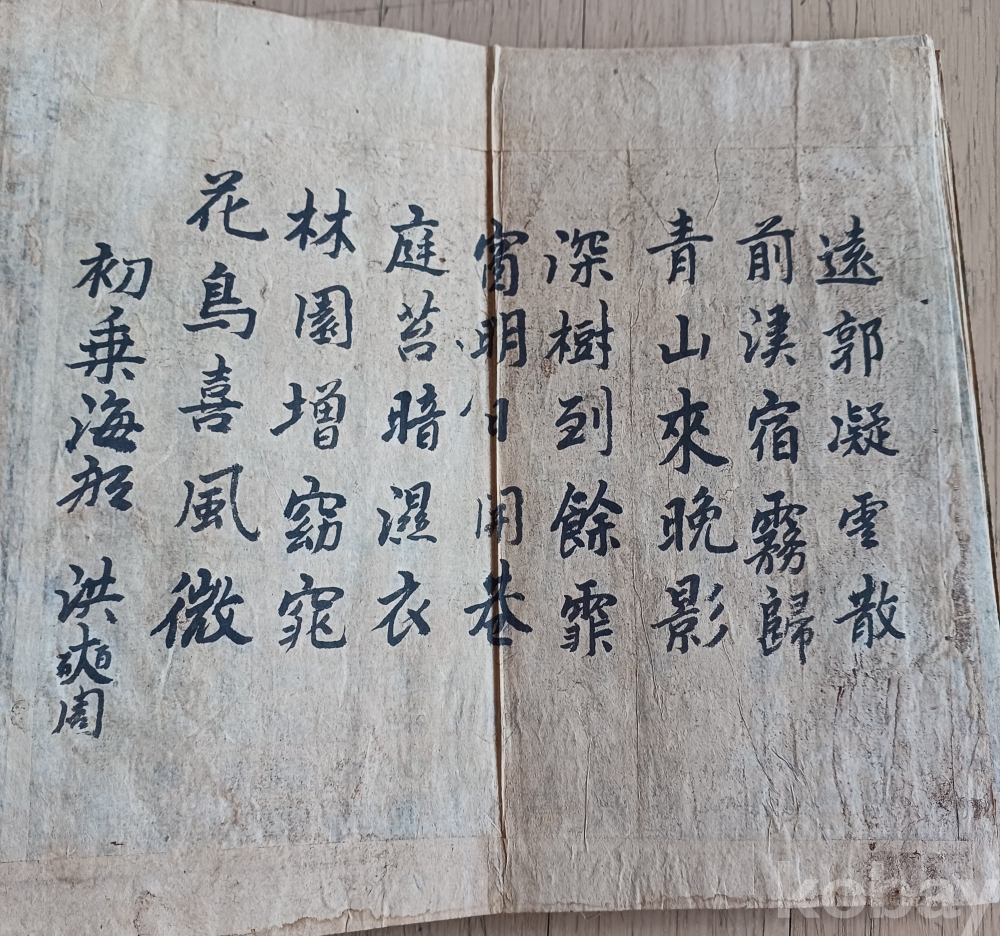 遠郭凝雲散
前溪宿霧歸
青山來晚影
深樹到餘霏
窗明開巷
庭苔暗濕衣
林園增窈窕
花鳥喜風微
初乘海船 洪奭周
kobay